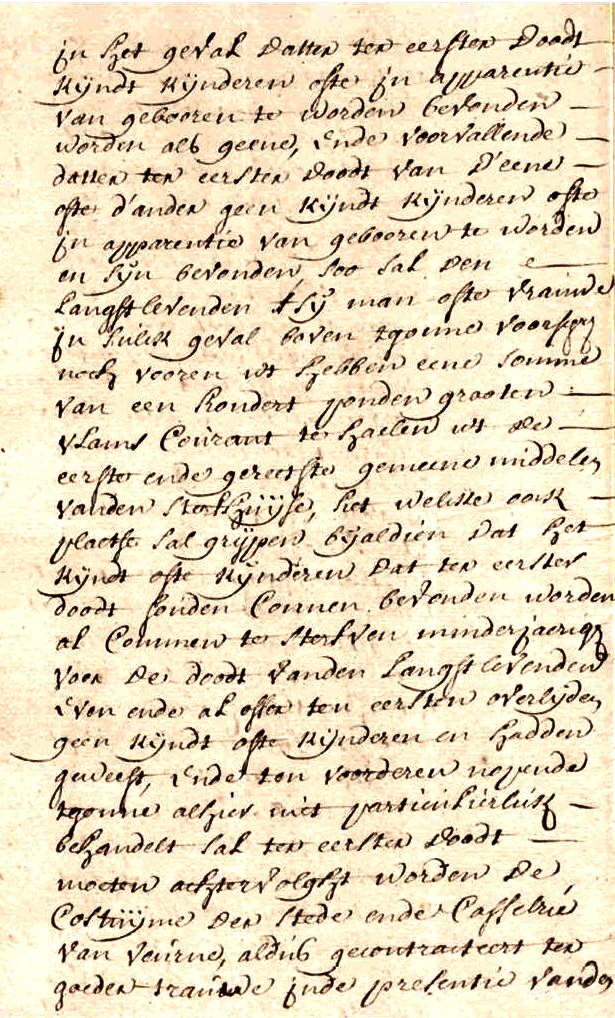 in het geval datter ter eersten doodt
kijndt kijnderen ofte in apparentie
van gebooren te worden bevonden
worden als geene, ende voorvallende
datter ter eersten doodt van d'eene
ofte d'ander geen kijndt kijnderen ofte
in apparentie van gebooren te worden
en sijn bevonden, soo sal den e
Langstlevenden tsij man ofte vrauwe
in sulck geval boven tgonne voorseyt
noch vooren ut hebben eene somme
van een hondert ponden grooten
vlams Courant te haelen ut de
eerste ende gereetste gemeene middelen
vanden sterfhuijse, het welcke oock
plaetse sal grijpen bijaldien dat het
kijndt ofte kijnderen dat ter eersten
doodt souden Connen bevonden worden
al Commen te sterfven minderjaerigh
voor de doodt vanden Langstlevenden
Even ende al ofter ten eersten overlijden
geen kijndt ofte kijnderen en hadden
geweest, Ende ten voorderen nopende
tgonne alhier niet particulierlick
behandelt sal ter eersten doodt
moeten achtervolght worden de
Costuijme der stede ende Casselrie
van veurne, aldus gecontracteert ter
goeder trauwe inde presentie vanden